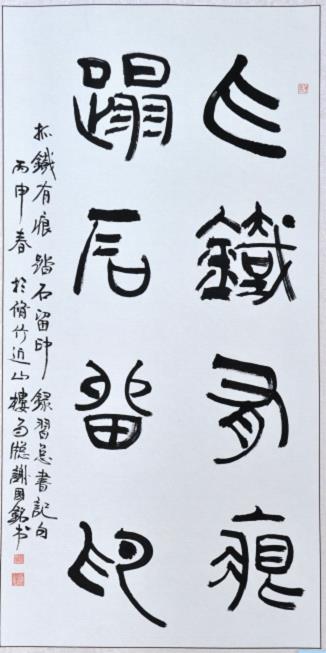 爪鐵有痕
蹋石留印
抓鐵有痕踏石留印 錄習总書記句
丙申春於脩竹近山樓南牕謝國銘书